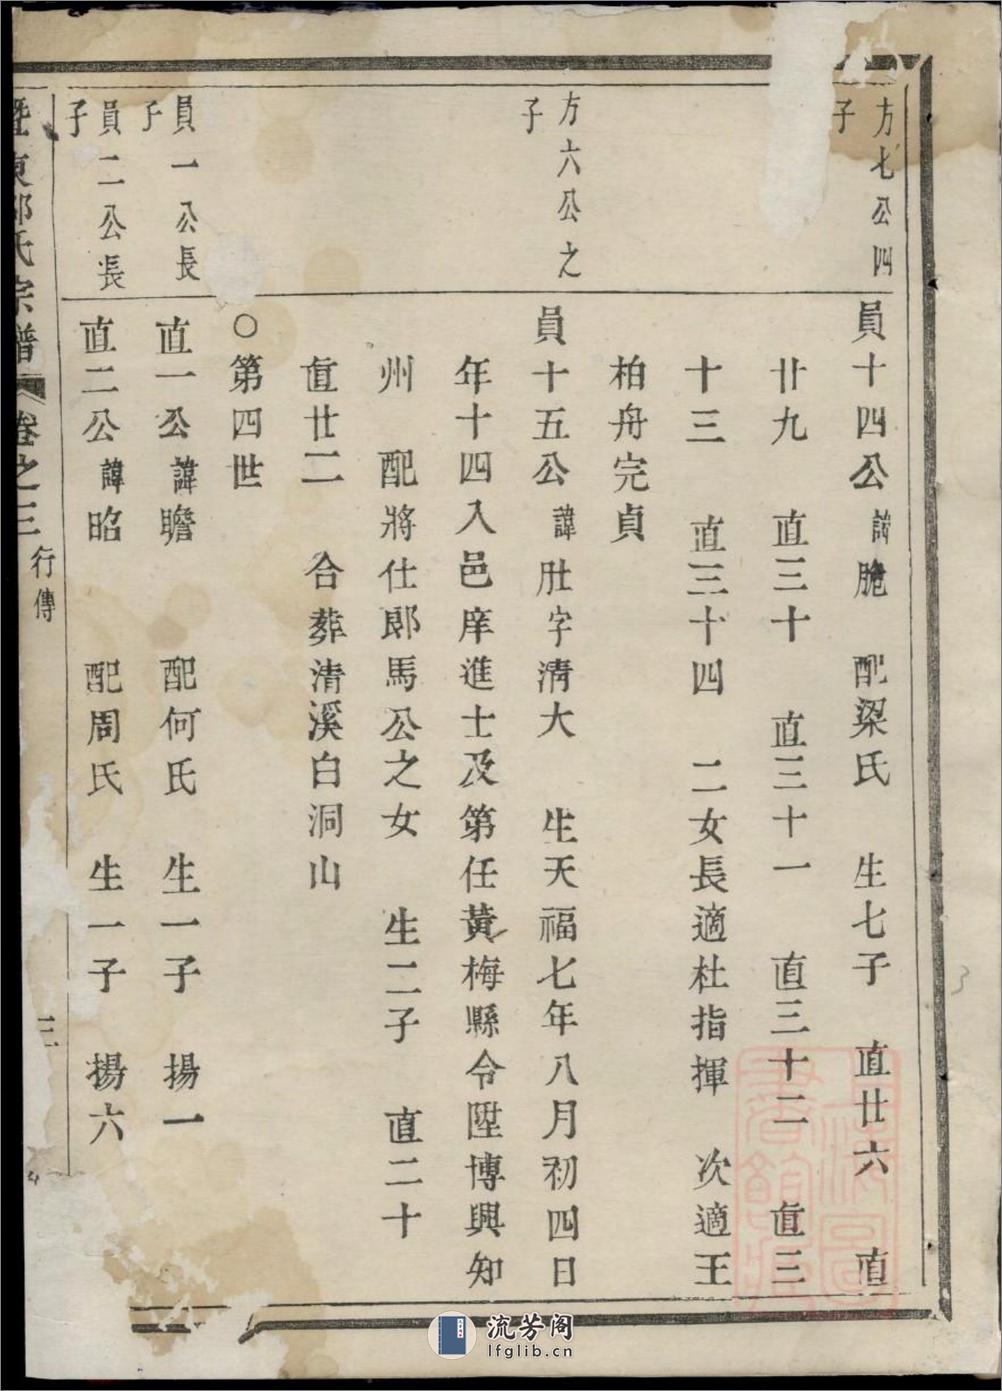 方七公四
子
員十四公諱脆　配梁氏　生七子　直廿六　直
廿九　直三十　直三十一　直三十二　直三
十三　直三十四　二女長適杜指揮　次適王
柏舟完貞
方六公之
子
員十五公諱肚字清大　生天福七年八月初四日
年十四入邑庠進士及第任黃梅縣令陞博興知
州　配將仕郎馬公之女　生二子　直二十
直廿二　合葬清溪白洞山
○第四世
員一公長
子
直一公諱瞻　配何氏　生一子　揚一
員二公長
子
直二公諱昭　配周氏　生一子　揚六
暨東郭氏宗譜　卷之三　行傳　三
流芳阁
lfglib.cn